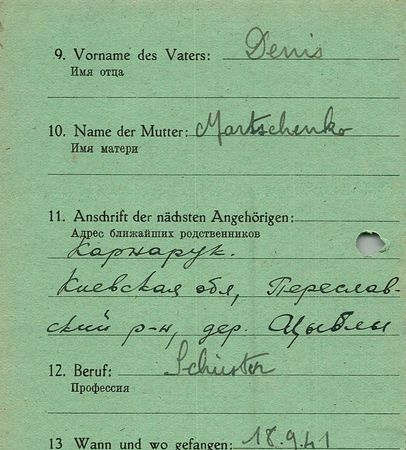 9. Vorname des Vaters: Denis
Имя отца
10. Name der Mutter: Martschenko
Имя матери
11. Anschrift der nächsten Angehörigen:
Адрес ближайших родственников
Карнарук.
Киевская обл, Переслав-
ский р-н, дер. Цыблы
12. Beruf: Schuster
Профессия
13 Wann und wo gefangen: 18.9.41